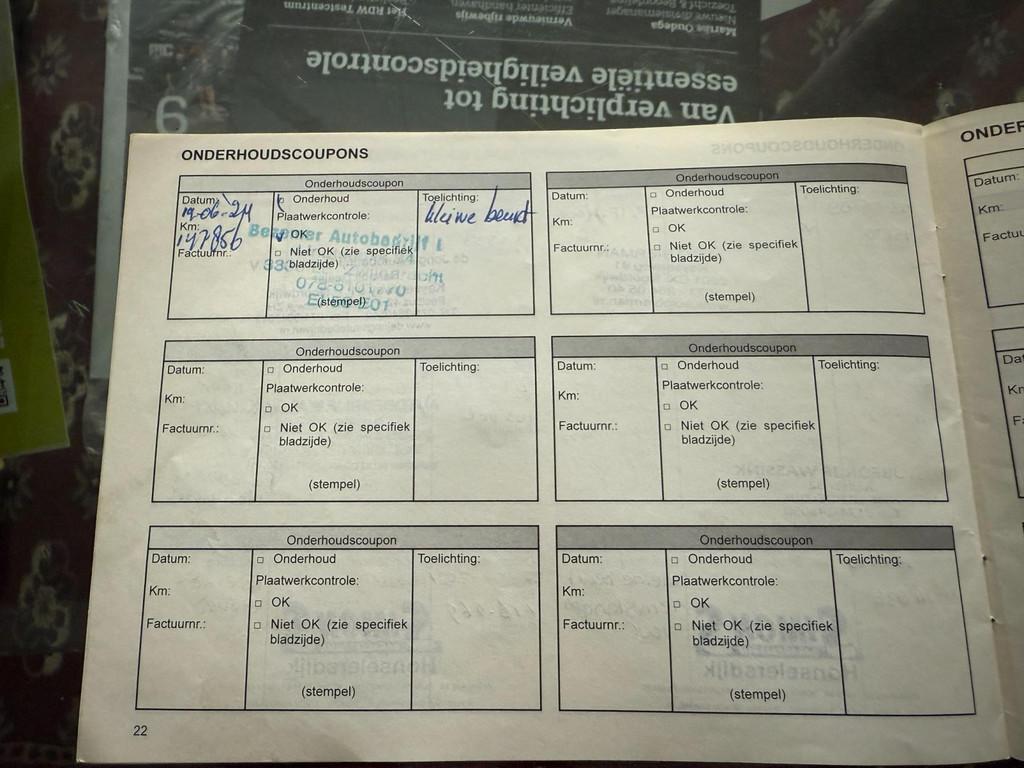 Het RDW Testcentrum
Vernieuwde rijbewijs
Efficiënter handhaven
Marise Oudega
Nieuwe divisiemanager
Toezicht & Beoordeling
Van verplichting tot
essentiële veiligheidscontrole
ONDERHOUDSCOUPONS
Onderhoudscoupon
Datum:
19-06-24
Km:
147856
Factuurnr.:
Onderhoud
Plaatwerkcontrole:
OK
Niet OK (zie specifiek
bladzijde)
(stempel)
Autobedrijf
Toelichting:
kleine beurt
Onderhoudscoupon
Datum:
Km:
Factuurnr.:
Onderhoud
Plaatwerkcontrole:
OK
Niet OK (zie specifiek
bladzijde)
(stempel)
Toelichting:
Onderhoudscoupon
Datum:
Km:
Factuurnr.:
Onderhoud
Plaatwerkcontrole:
OK
Niet OK (zie specifiek
bladzijde)
(stempel)
Toelichting:
Onderhoudscoupon
Datum:
Km:
Factuurnr.:
Onderhoud
Plaatwerkcontrole:
OK
Niet OK (zie specifiek
bladzijde)
(stempel)
Toelichting:
Onderhoudscoupon
Datum:
Km:
Factuurnr.:
Onderhoud
Plaatwerkcontrole:
OK
Niet OK (zie specifiek
bladzijde)
(stempel)
Toelichting:
Onderhoudscoupon
Datum:
Km:
Factuurnr.:
Onderhoud
Plaatwerkcontrole:
OK
Niet OK (zie specifiek
bladzijde)
(stempel)
Toelichting:
22
Datum:
Km: